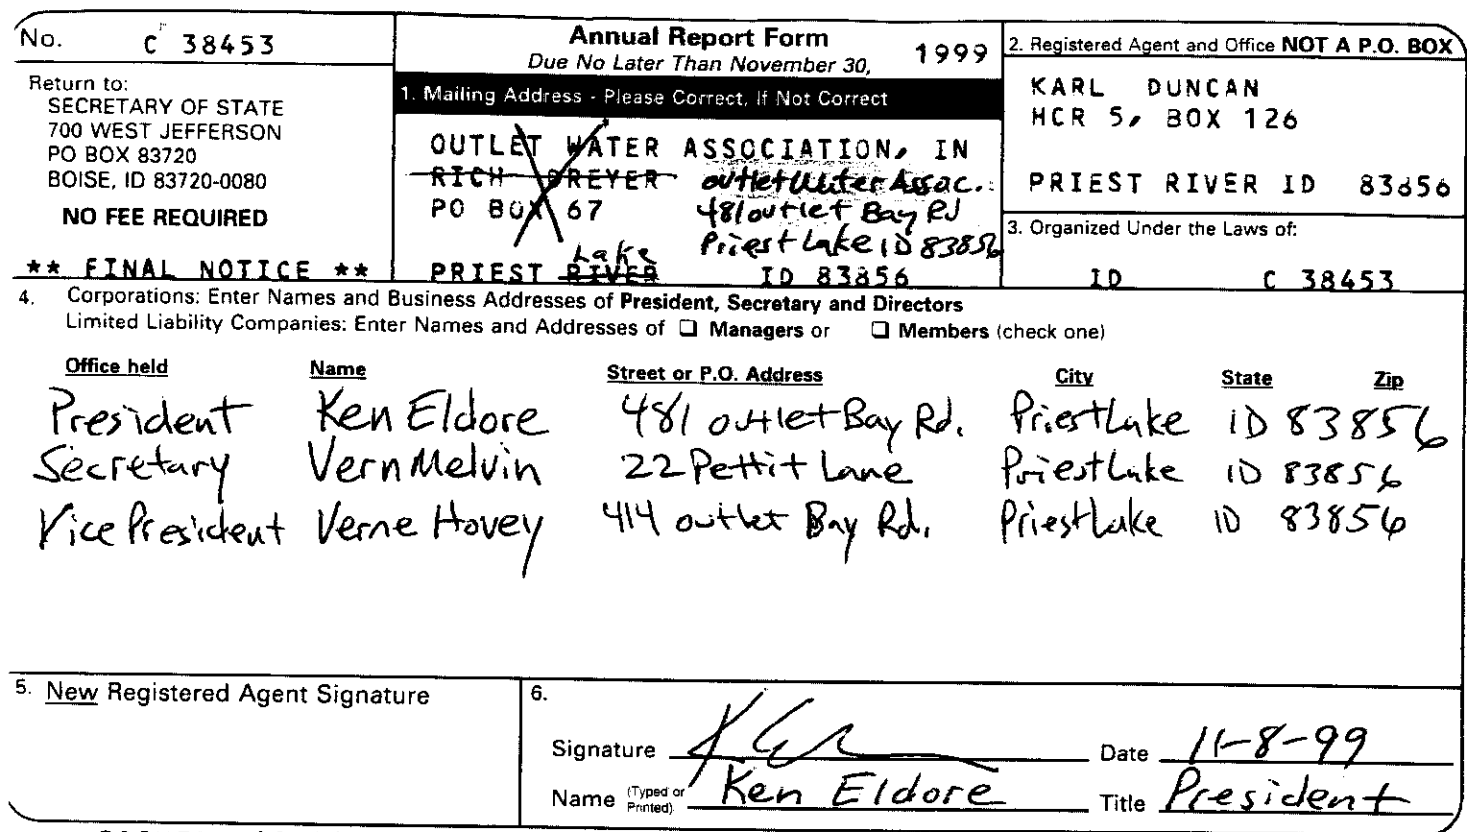 No. C 38453
Annual Report Form 1999
Due No Later Than November 30,
Return to:
SECRETARY OF STATE
700 WEST JEFFERSON
PO BOX 83720
BOISE, ID 83720-0080
NO FEE REQUIRED
** FINAL NOTICE **
1. Mailing Address - Please Correct, If Not Correct
OUTLET WATER ASSOCIATION, IN
RICH DREYER outlet Water Assoc.
PO BOX 67 481 outlet Bay Rd
Priest Lake ID 83856
Lake
PRIEST RIVER ID 83856
2. Registered Agent and Office NOT A P.O. BOX
KARL DUNCAN
HCR 5, BOX 126
PRIEST RIVER ID 83856
3. Organized Under the Laws of:
ID C 38453
4. Corporations: Enter Names and Business Addresses of President, Secretary and Directors
Limited Liability Companies: Enter Names and Addresses of ☐ Managers or ☐ Members (check one)
Office held Name Street or P.O. Address City State Zip
President Ken Eldore 481 outlet Bay Rd. Priest Lake ID 83856
Secretary Vern Melvin 22 Pettit Lane Priest Lake ID 83856
Vice President Verne Hovey 414 outlet Bay Rd. Priest Lake ID 83856
5. New Registered Agent Signature
6.
Signature Date 11-8-99
Name (Typed or Printed) Ken Eldore Title President